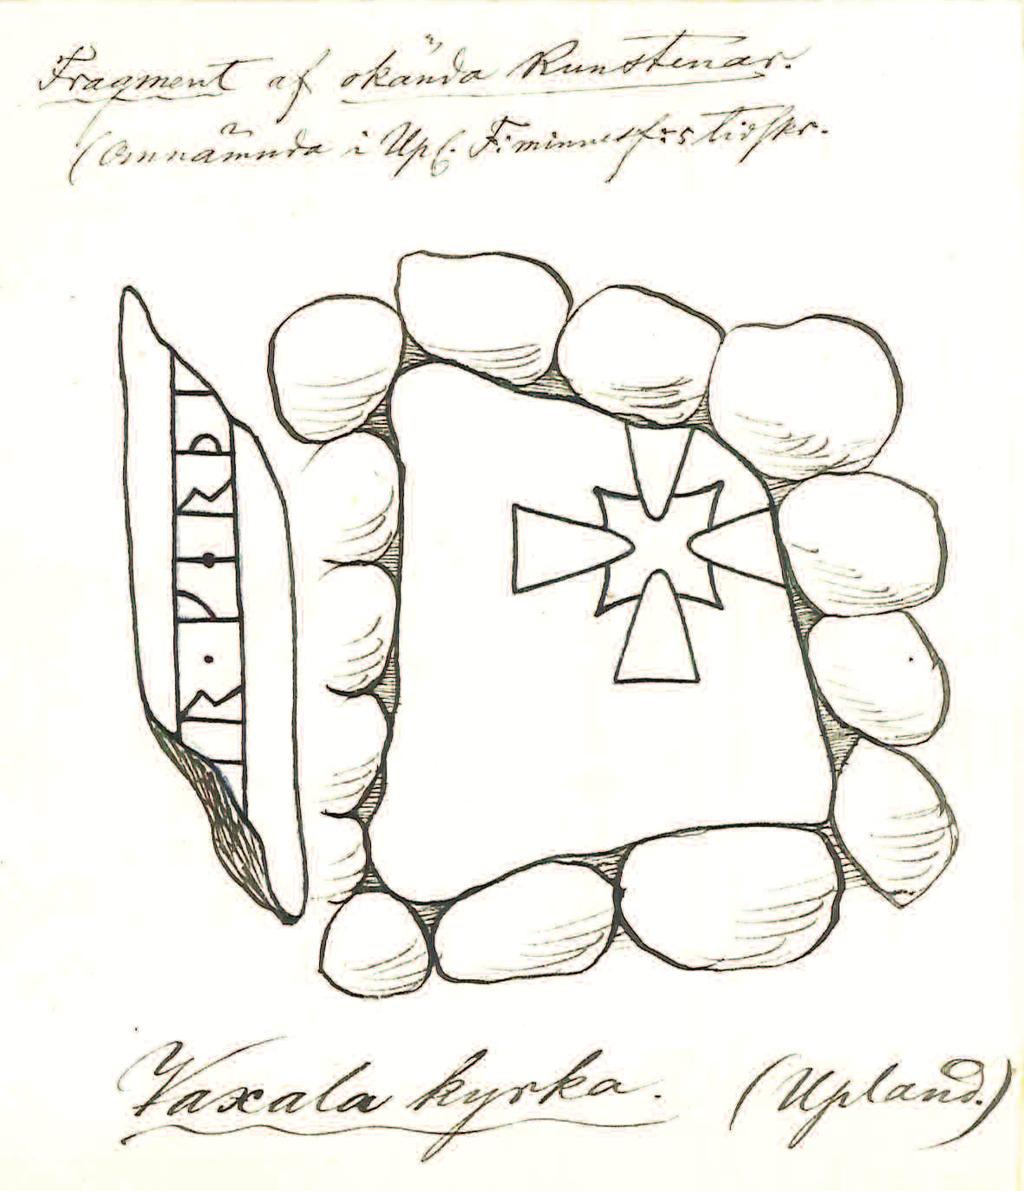 Fragment af okända Runstenar.
(Omnämnda i Upl. F:minnesför:s tidskr.
Vaxala kyrka. (Upland.)